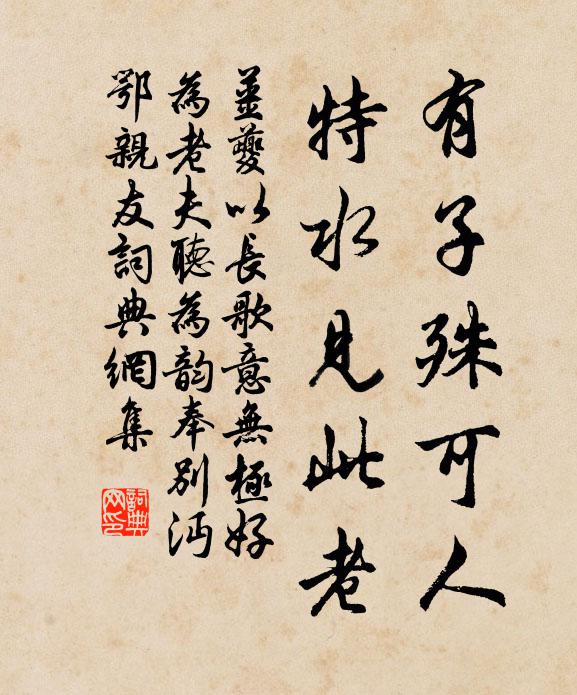 有子殊可人
特水見此老
姜夔以長歌意無極好
為老夫聽為韵奉別沔
鄂親友詞典網集
詞典网印